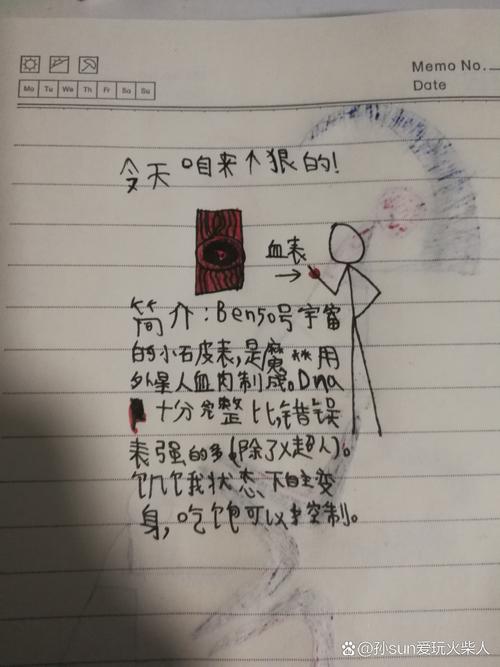 Memo No.
Date
Mo Tu We Th Fr Sa Su
今天咱来个狠的!
血表
简介:Ben50号宇宙
的小石皮表,是魔***用
外星人血肉制成。Dna
十分完整比错误
表强的多(除了X超人)。
饥饿状态下自主变
身,吃饱可以控制。
孙sun爱玩火柴人